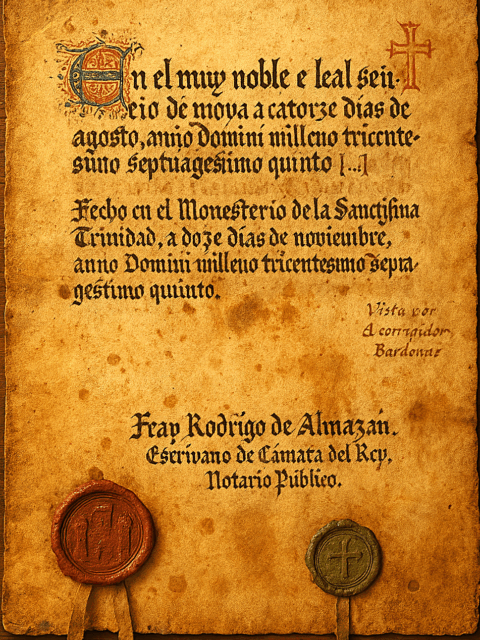 En el muy noble e leal señ-
eio de moya a catorze días de
agosto, anno Domini milleno tricente-
simo septuagesimo quinto [...]
Fecho en el Monesterio de la Sanctisina
Trinidad, a doze días de noviembre,
anno Domini milleno tricentesimo septa-
gestimo quinto.
Vista por
A corrigidor
Bardonar
Fray Rodrigo de Almazán.
Escrivano de Cámata del Rey.
Notario Público.